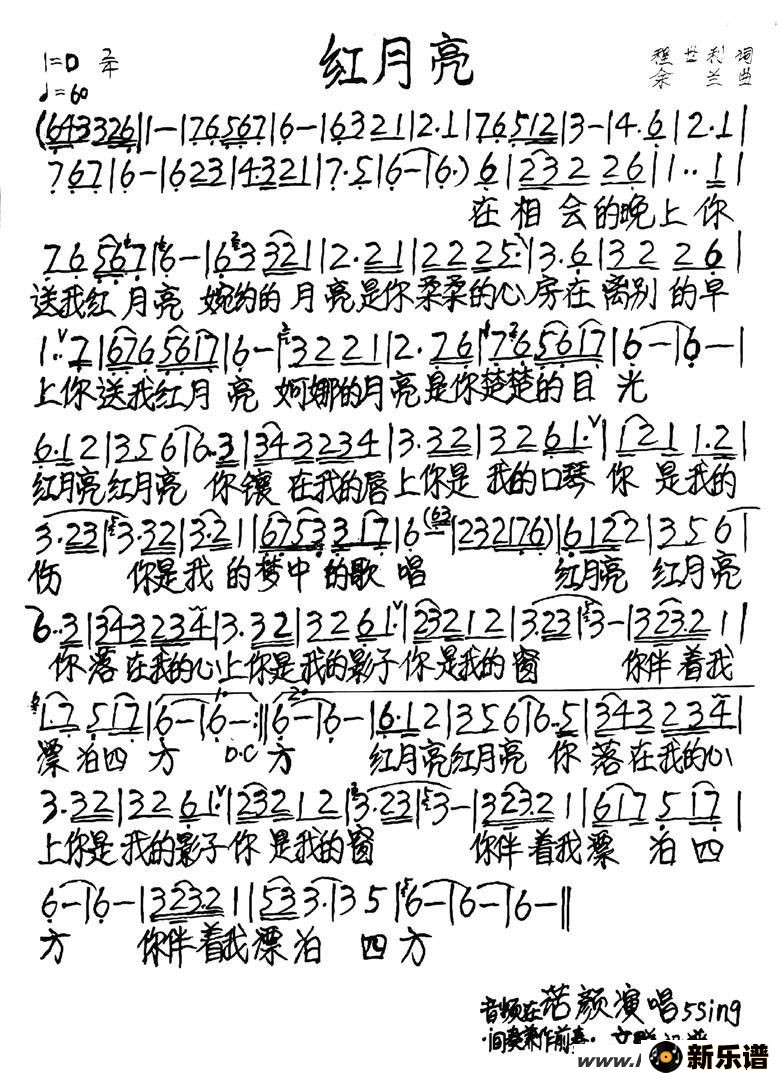 红月亮
1=D 2/4
♩=60
程世利 词
余兰 曲
(643326|1-|76567|6-|6321|2·1|76512|3-|4·6|2·1|
767|6-|623|4321|7·5|6-|6·)6|232 26|1··1|
在相会的晚上你
76 567|6-|63321|2·21|22225·|3·6|32 26|
送我红月亮 婉约的月亮是你柔柔的心房在离别的早
1··7|6765617|6-|3221|2·76|765617|6-|6-|
上你送我红月亮 婀娜的月亮是你楚楚的目光
6·12|356|6··3|343234|3·32|3261·|121 1·2|
红月亮红月亮 你镶在我的唇上你是我的口琴你是我的
3·23|3·32|3·21|6753317|6(63|232176)|6122|356|
伤 你是我的梦中的歌唱 红月亮 红月亮
6··3|343234|3·32|3261·|23212|3·23|3-|323·21|
你落在我的心上你是我的影子你是我的窗 你伴着我
1·7 517|6-|6-:||6-|6-|6·12|356|6··5|343234|
漂泊四方 D.C 方 红月亮红月亮 你落在我的心
3·32|3261·|23212|3·23|3-|323·21|617 517|
上你是我的影子你是我的窗 你伴着我漂泊四
6-|6-|323·21|533·|35|6-|6-|6-||
方 你伴着我漂泊 四方
音频在诺颜演唱5sing
·间奏兼作前奏·
www.
新乐谱